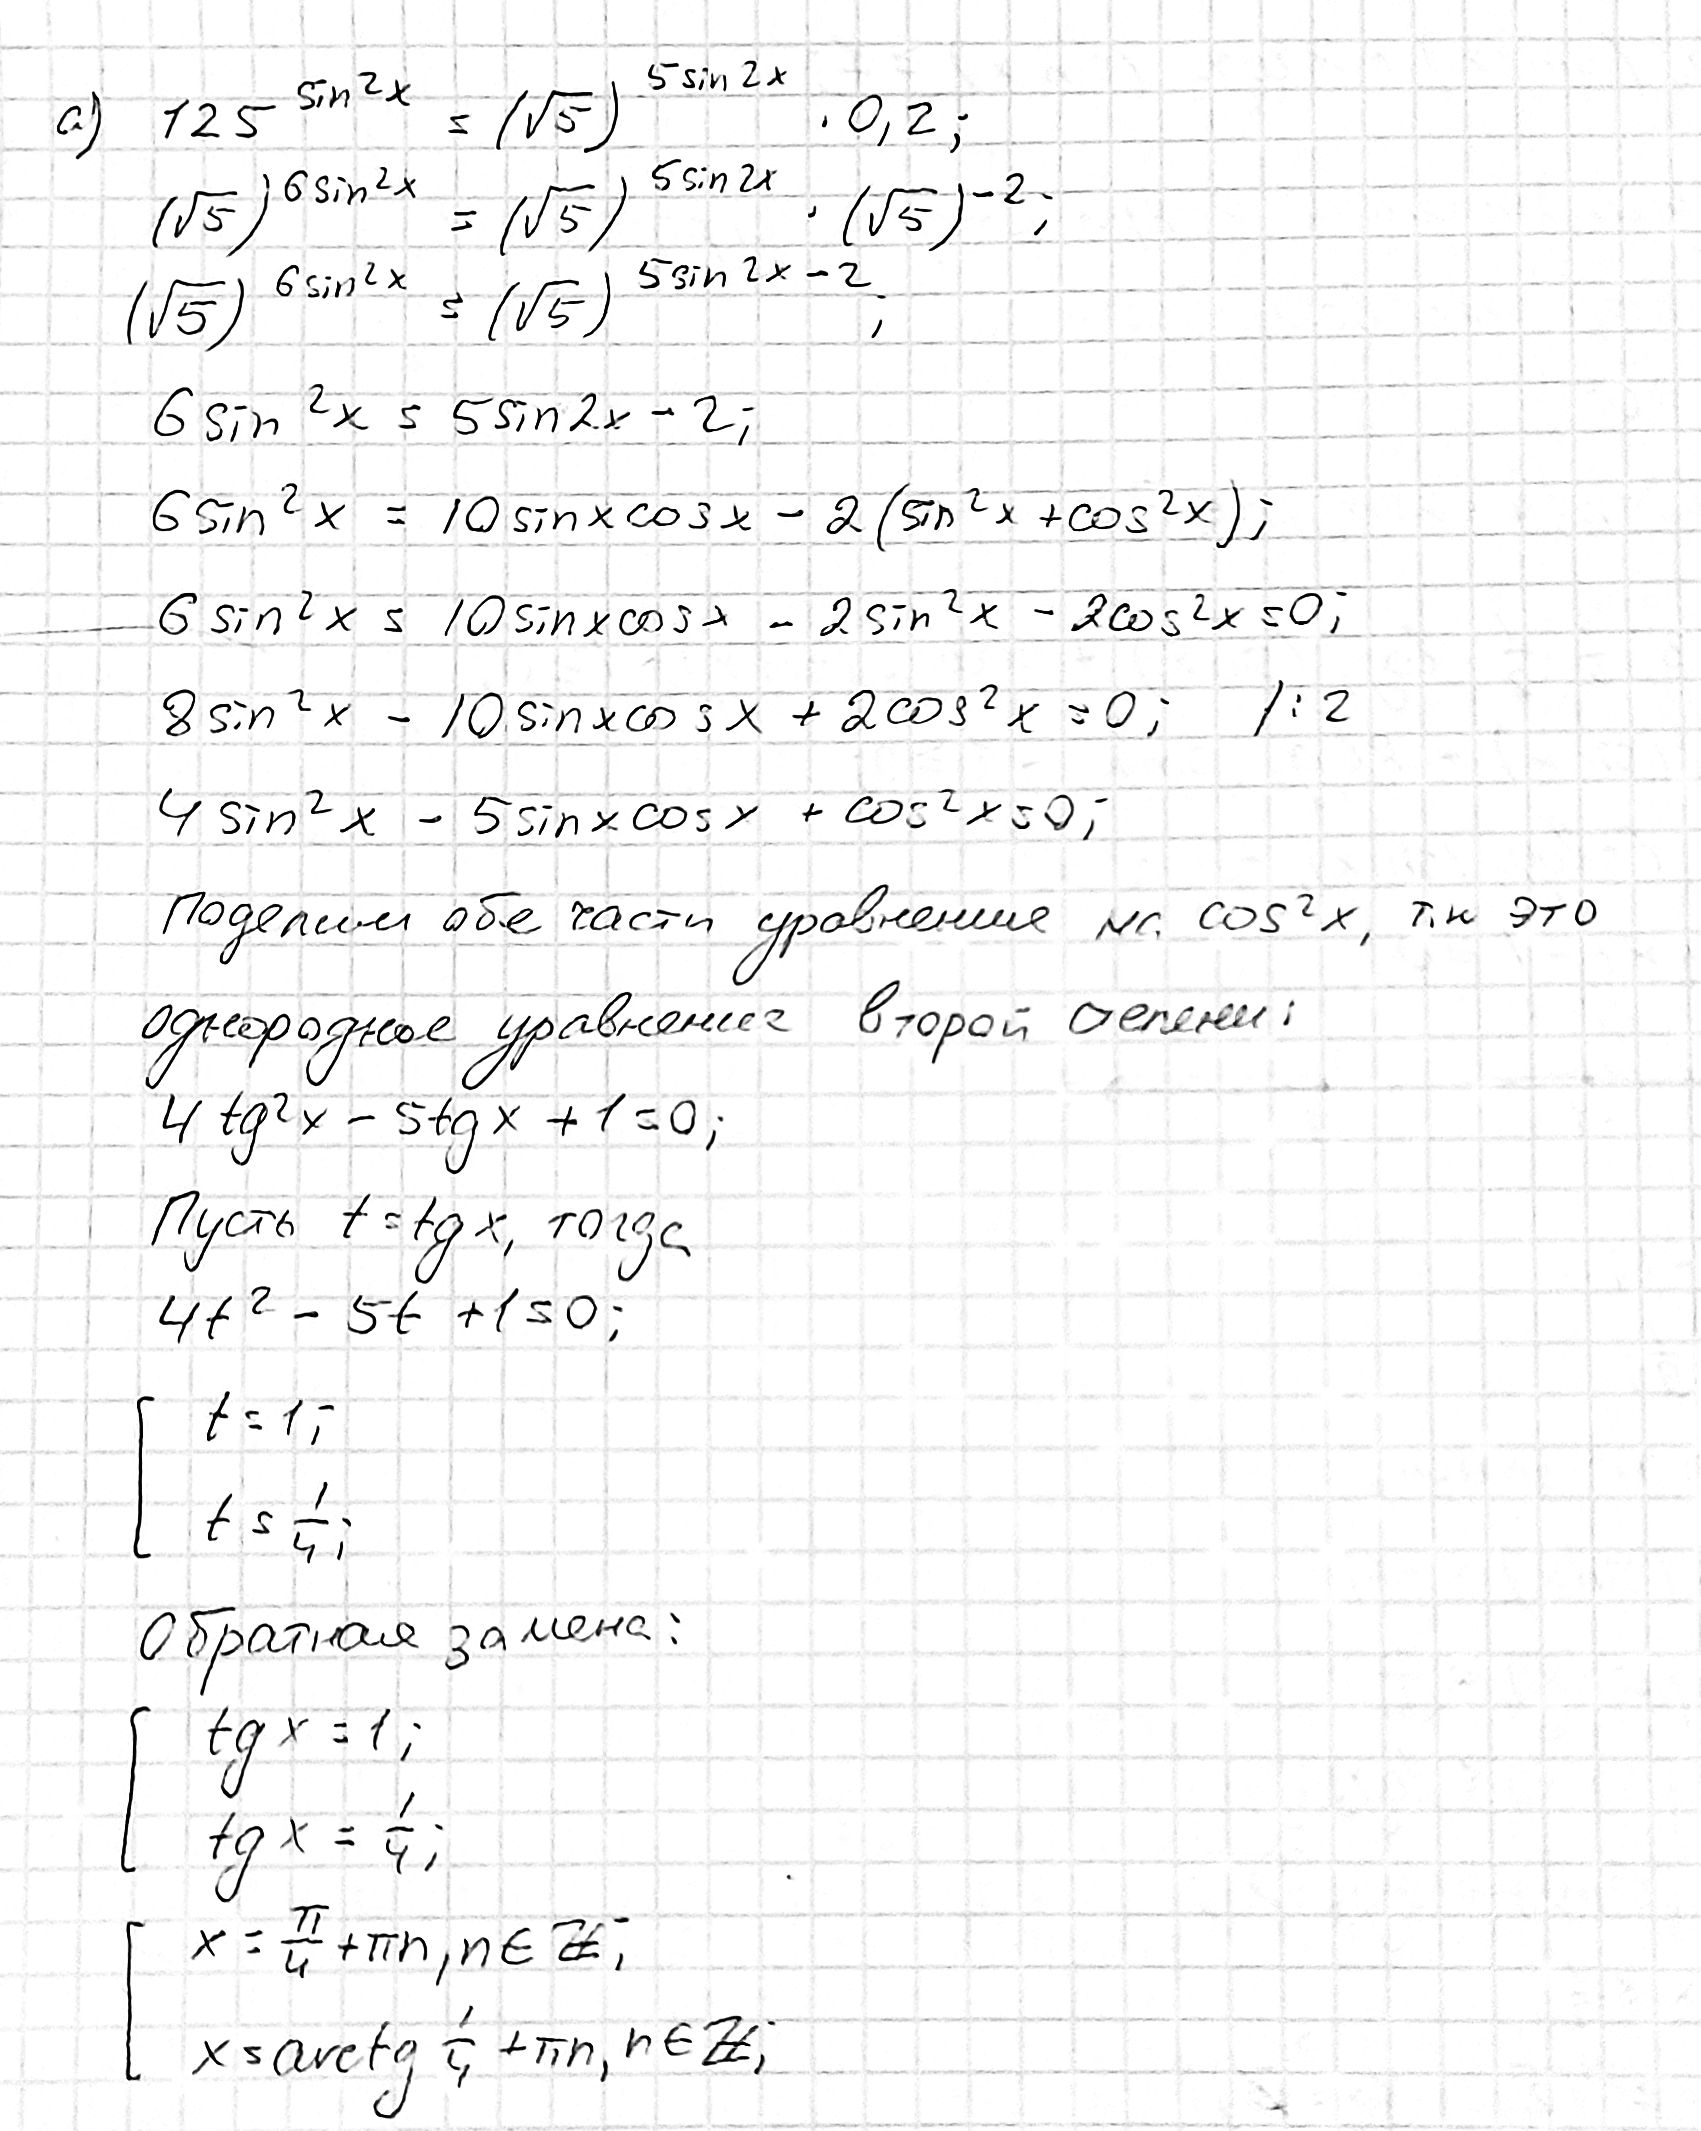 а) 125^(sin²x) = (√5)^(5sin2x) · 0,2;
(√5)^(6sin²x) = (√5)^(5sin2x) · (√5)^(-2);
(√5)^(6sin²x) = (√5)^(5sin2x-2);
6sin²x = 5sin2x - 2;
6sin²x = 10sinxcosx - 2(sin²x + cos²x);
6sin²x = 10sinxcosx - 2sin²x - 2cos²x = 0;
8sin²x - 10sinxcosx + 2cos²x = 0; /:2
4sin²x - 5sinxcosx + cos²x = 0;
Поделим обе части уравнение на cos²x, т.к это
однородное уравнение второй степени:
4tg²x - 5tgx + 1 = 0;
Пусть t = tgx, тогда
4t² - 5t + 1 = 0;
t = 1;
t = 1/4;
Обратная замена:
tgx = 1;
tgx = 1/4;
x = π/4 + πn, n ∈ ℤ;
x = arctg 1/4 + πn, n ∈ ℤ;